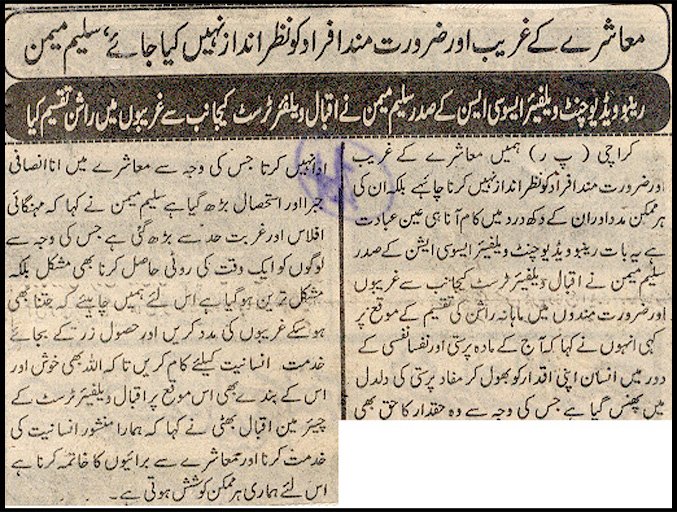 معاشرے کے غریب اور ضرورت مند افراد کو نظر انداز نہیں کیا جائے، سلیم میمن
رینبو ویڈیو جنٹ ویلفیئر ایسوسی ایسن کے صدر سلیم میمن نے اقبال ویلفئر ٹرسٹ کیجانب سے غریبوں میں راشن تقسیم کیا
کراچی (پ ر) ہمیں معاشرے کے غریب
اور ضرورت مند افراد کو نظر انداز نہیں کرنا چاہیے بلکہ ان کی
ہر ممکن مدد اور ان کے دکھ درد میں کام آنا ہی عین عبادت
ہے یہ بات رینبو ویڈیو جنٹ ویلفیئر ایسوسی ایشن کے صدر
سلیم میمن نے اقبال ویلفیئر ٹرسٹ کیجانب سے غریبوں
اور ضرورت مندوں میں ماہانہ راشن کی تقسیم کے موقع پر
کہی انہوں نے کہا کہ آج کے مادہ پرستی اور نفسا نفسی کے
دور میں انسان اپنی اقدار کو بھول کر مفاد پرستی کی دلدل
میں پھنس گیا ہے جس کی وجہ سے وہ حقدار کا حق بھی
ادا نہیں کرتا جس کی وجہ سے معاشرے میں نا انصافی
جبر اور استحصال بڑھ گیا ہے سلیم میمن نے کہا کہ مہنگائی
افلاس اور غربت حد سے بڑھ گئی ہے جس کی وجہ سے
لوگوں کو ایک وقت کی روٹی حاصل کرنا بھی مشکل بلکہ
مشکل ترین ہو گیا ہے اس لئے ہمیں چاہیئے کہ جتنا بھی
ہو سکے غریبوں کی مدد کریں اور حصول زر کے بجائے
خدمت انسانیت کیلئے کام کریں تاکہ اللہ بھی خوش اور
اس کے بندے بھی اس موقع پر اقبال ویلفیئر ٹرسٹ کے
چیئر مین اقبال بھٹی نے کہا کہ ہمارا منشور انسانیت کی
خدمت کرنا اور معاشرے سے برائیوں کا خاتمہ کرنا ہے
اس لئے ہماری ہر ممکن کوشش ہوتی ہے۔